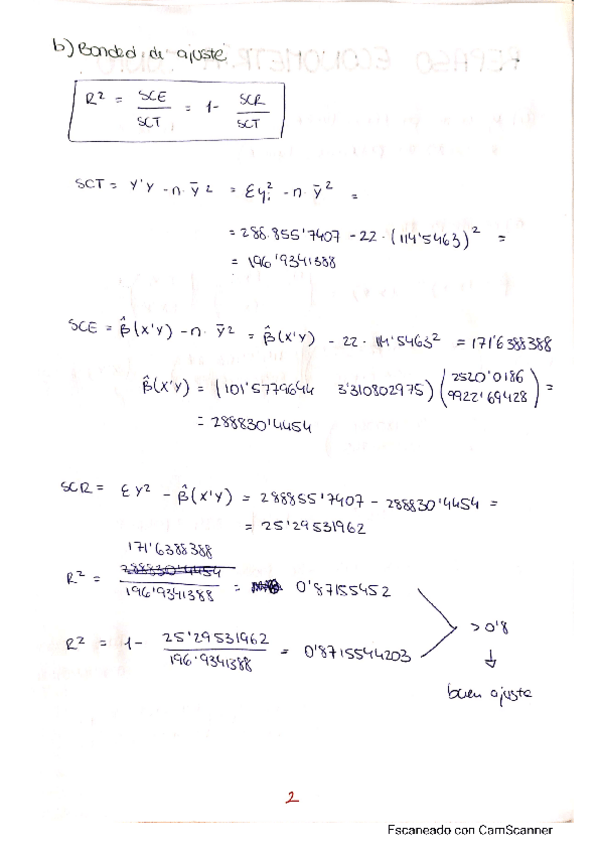 b) Bondad de ajuste
R² = SCE / SCT = 1- SCR / SCT
SCT = Y'Y - n·ȳ² = Σy²ᵢ - n·ȳ² =
= 288.855'7407 - 22·(114'5463)² =
= 196'9341388
SCE = β̂(X'Y) - n·ȳ² = β̂(X'Y) - 22·114'5463² = 171'6388388
β̂(X'Y) = (101'5779644 3'310802975) (2520'0186
9922'69428) =
= 288830'4454
SCR = Σy² - β̂(X'Y) = 288855'7407 - 288830'4454 =
= 25'29531962
171'6388388
R² = 288830'4454 / 196'9341388 = 0'87155452
R² = 1- 25'29531962 / 196'9341388 = 0'8715544203
> 0'8
↓
buen ajuste
2
Escaneado con CamScanner